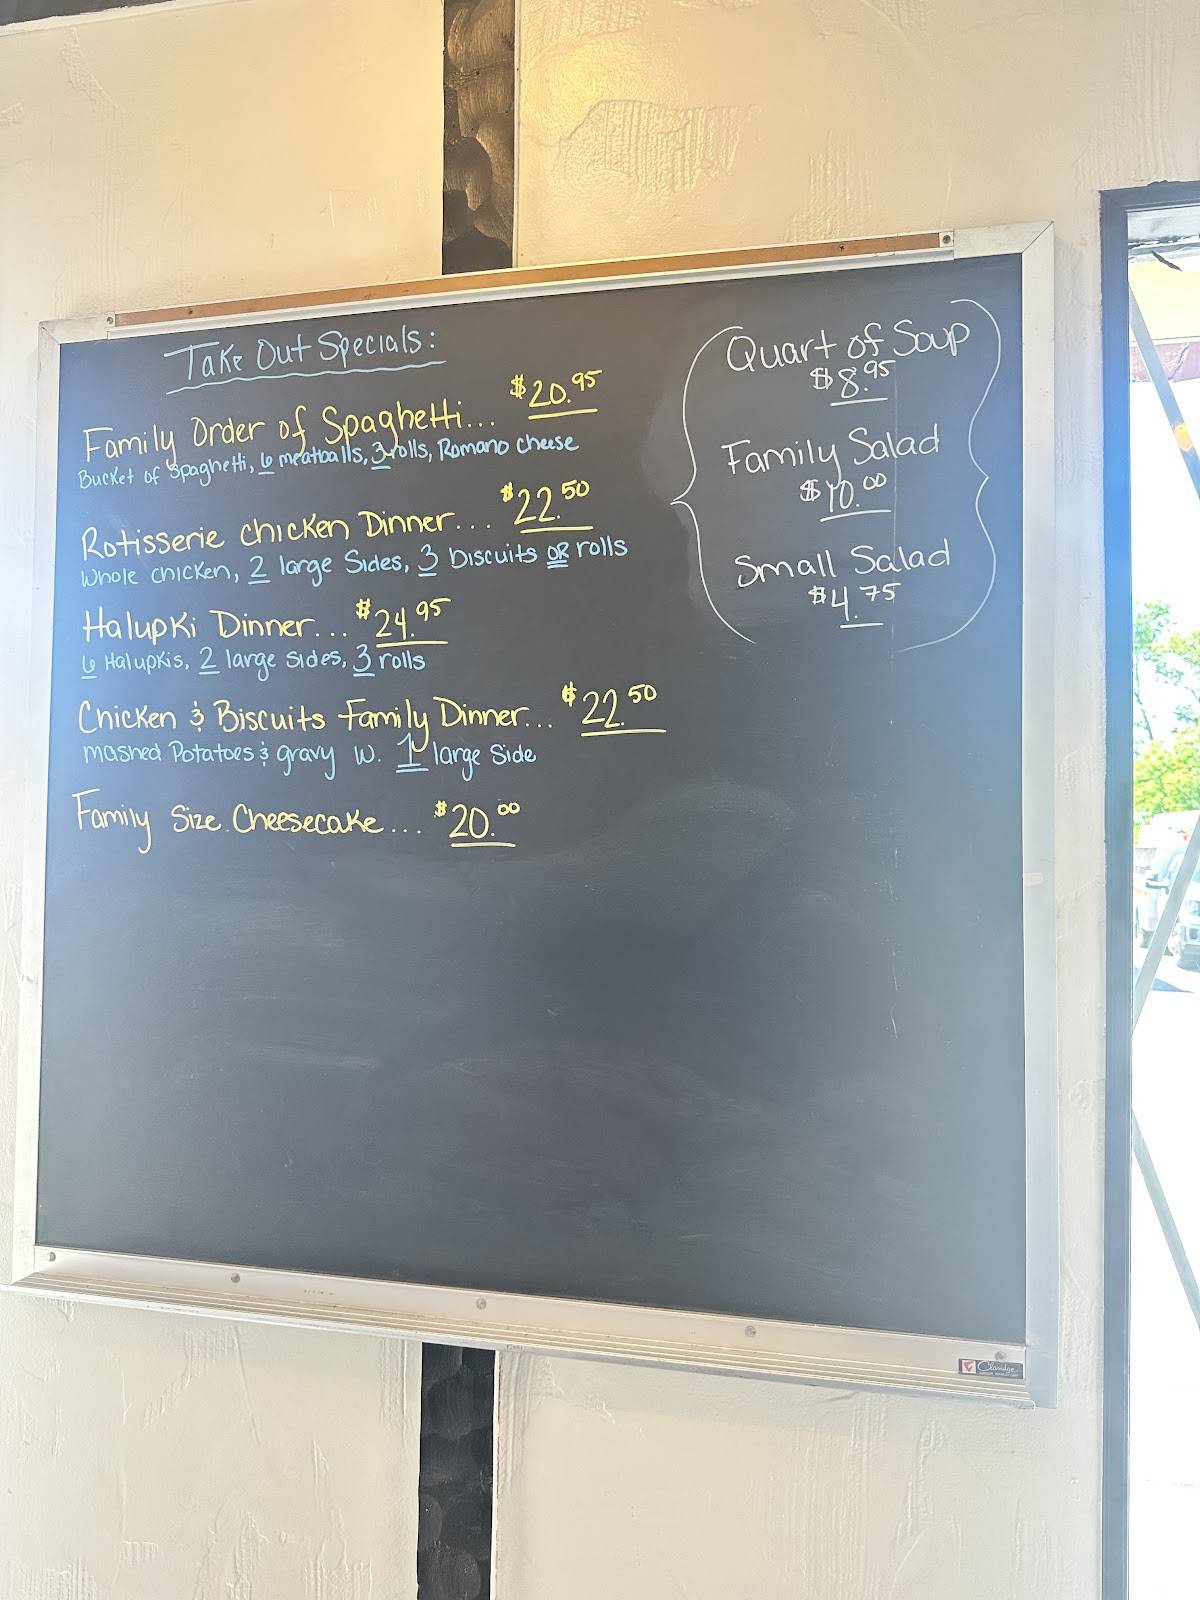 Take Out Specials:
Family Order of Spaghetti... $20.95
Bucket of Spaghetti, 6 meatballs, 3 rolls, Romano cheese
Rotisserie Chicken Dinner... $22.50
Whole chicken, 2 large Sides, 3 biscuits OR rolls
Halupki Dinner... $24.95
6 Halupkis, 2 large sides, 3 rolls
Chicken & Biscuits Family Dinner... $22.50
Mashed Potatoes & gravy w. 1 large Side
Family Size Cheesecake... $20.00
Quart of Soup
$8.95
Family Salad
$10.00
Small Salad
$4.75
Claridge